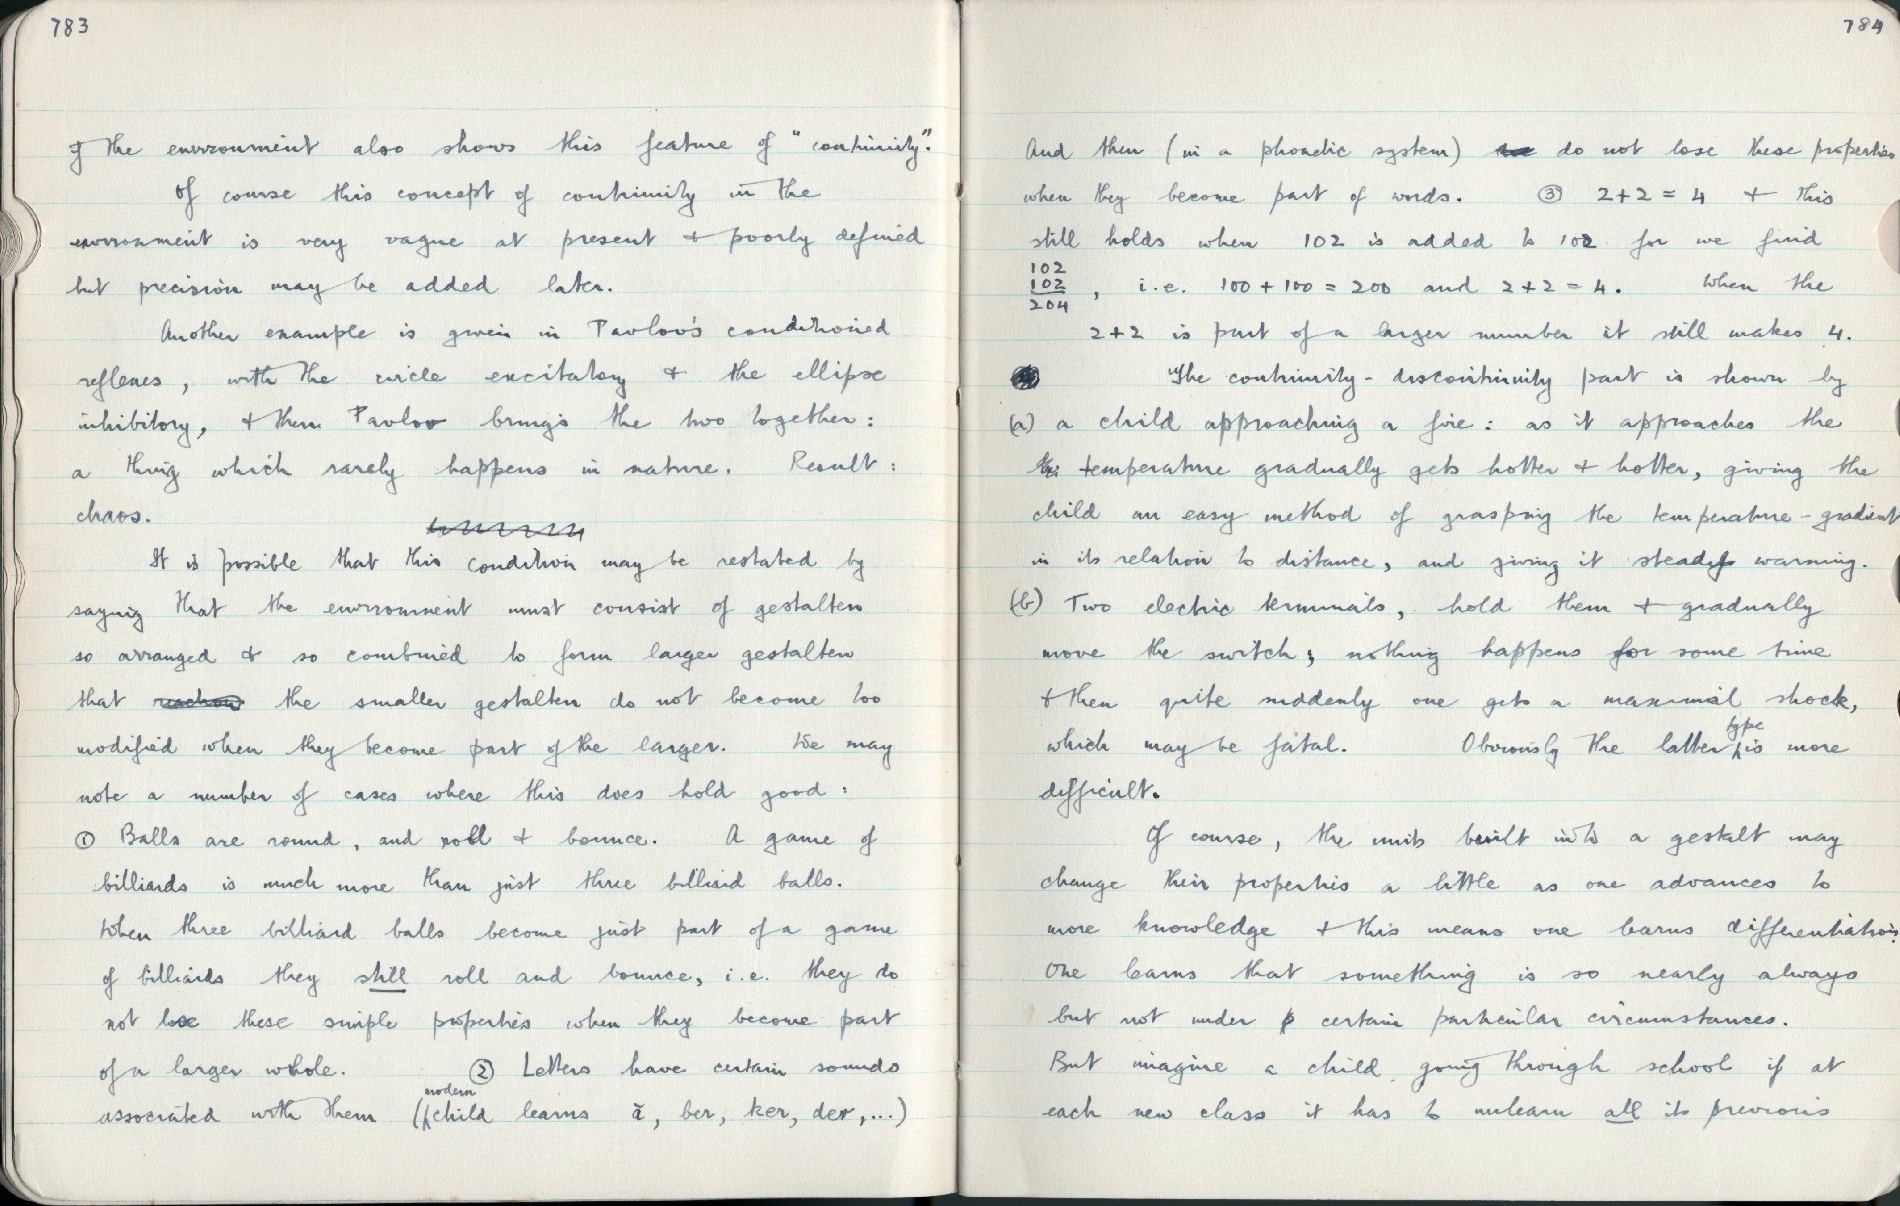 783
if the environment also shows this feature of "continuity".
Of course this concept of continuity in the
environment is very vague at present & poorly defined
but precision may be added later.
Another example is given in Pavlov's conditioned
reflexes, with the circle excitatory & the ellipse
inhibitory, & then Pavlov brings the two together:
a thing which rarely happens in nature. Result:
chaos.
It is possible that this condition may be restated by
saying that the environment must consist of gestalten
so arranged & so combined to form larger gestalten
that reaction the smaller gestalten do not become too
modified when they become part of the larger. We may
note a number of cases where this does hold good:
① Balls are round, and roll & bounce. A game of
billiards is much more than just three billiard balls.
When three billiard balls become just part of a game
of billiards they still roll and bounce, i.e. they do
not lose these simple properties when they become part
of a larger whole. ② Letters have certain sounds
associated with them (modern child learns ā, ber, ker, der,...)
784
And then (in a phonetic system) do not lose these properties
when they become part of words. ③ 2+2 = 4 & this
still holds when 102 is added to 102 for we find
102
102
204
, i.e. 100 + 100 = 200 and 2+2 = 4. When the
2+2 is part of a larger number it still makes 4.
The continuity-discontinuity part is shown by
(a) a child approaching a fire: as it approaches the
temperature gradually gets hotter & hotter, giving the
child an easy method of grasping the temperature-gradient
in its relation to distance, and giving it steady warning.
(b) Two electric terminals, hold them & gradually
move the switch; nothing happens for some time
& then quite suddenly one gets a maximal shock,
which may be fatal. Obviously the latter type is more
difficult.
Of course, the units built into a gestalt may
change their properties a little as one advances to
more knowledge & this means one learns differentiation.
One learns that something is so nearly always
but not under certain particular circumstances.
But imagine a child going through school if at
each new class it has to unlearn all its previous